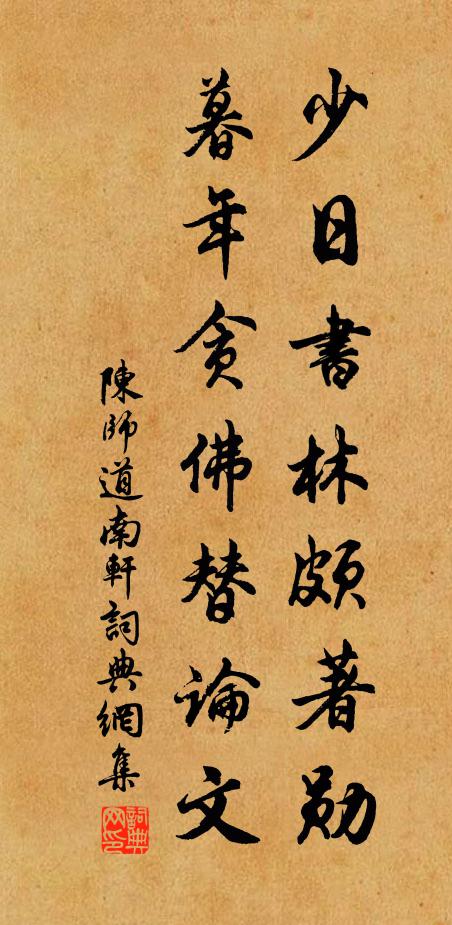 少日書林頗著勛
暮年貪佛替論文
陳師道南軒詞典網集
詞典網印